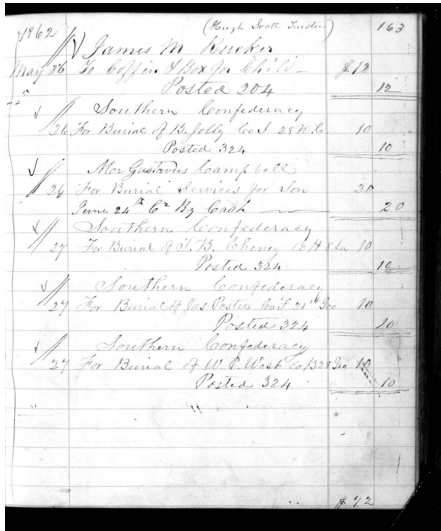 1862 (Hugh Scott Trustee) 163
James M
May 26 To Coffin & Box for Child $12
Posted 204 12
Southern Confederacy
26 For Burial of B. Jolly Co I 28 N.C. 10
Posted 324 10
Mrs Gustavus Campbell
26 For Burial Services for Son 20
June 24th Cr By Cash 20
Southern Confederacy
27 For Burial of T. B. Cheney Co H 10
Posted 324 10
Southern Confederacy
27 For Burial of Jas Porter Co F 21st Geo 10
Posted 324 10
Southern Confederacy
27 For Burial of W. P. West Co B 28 Geo 10
Posted 324 10
$72